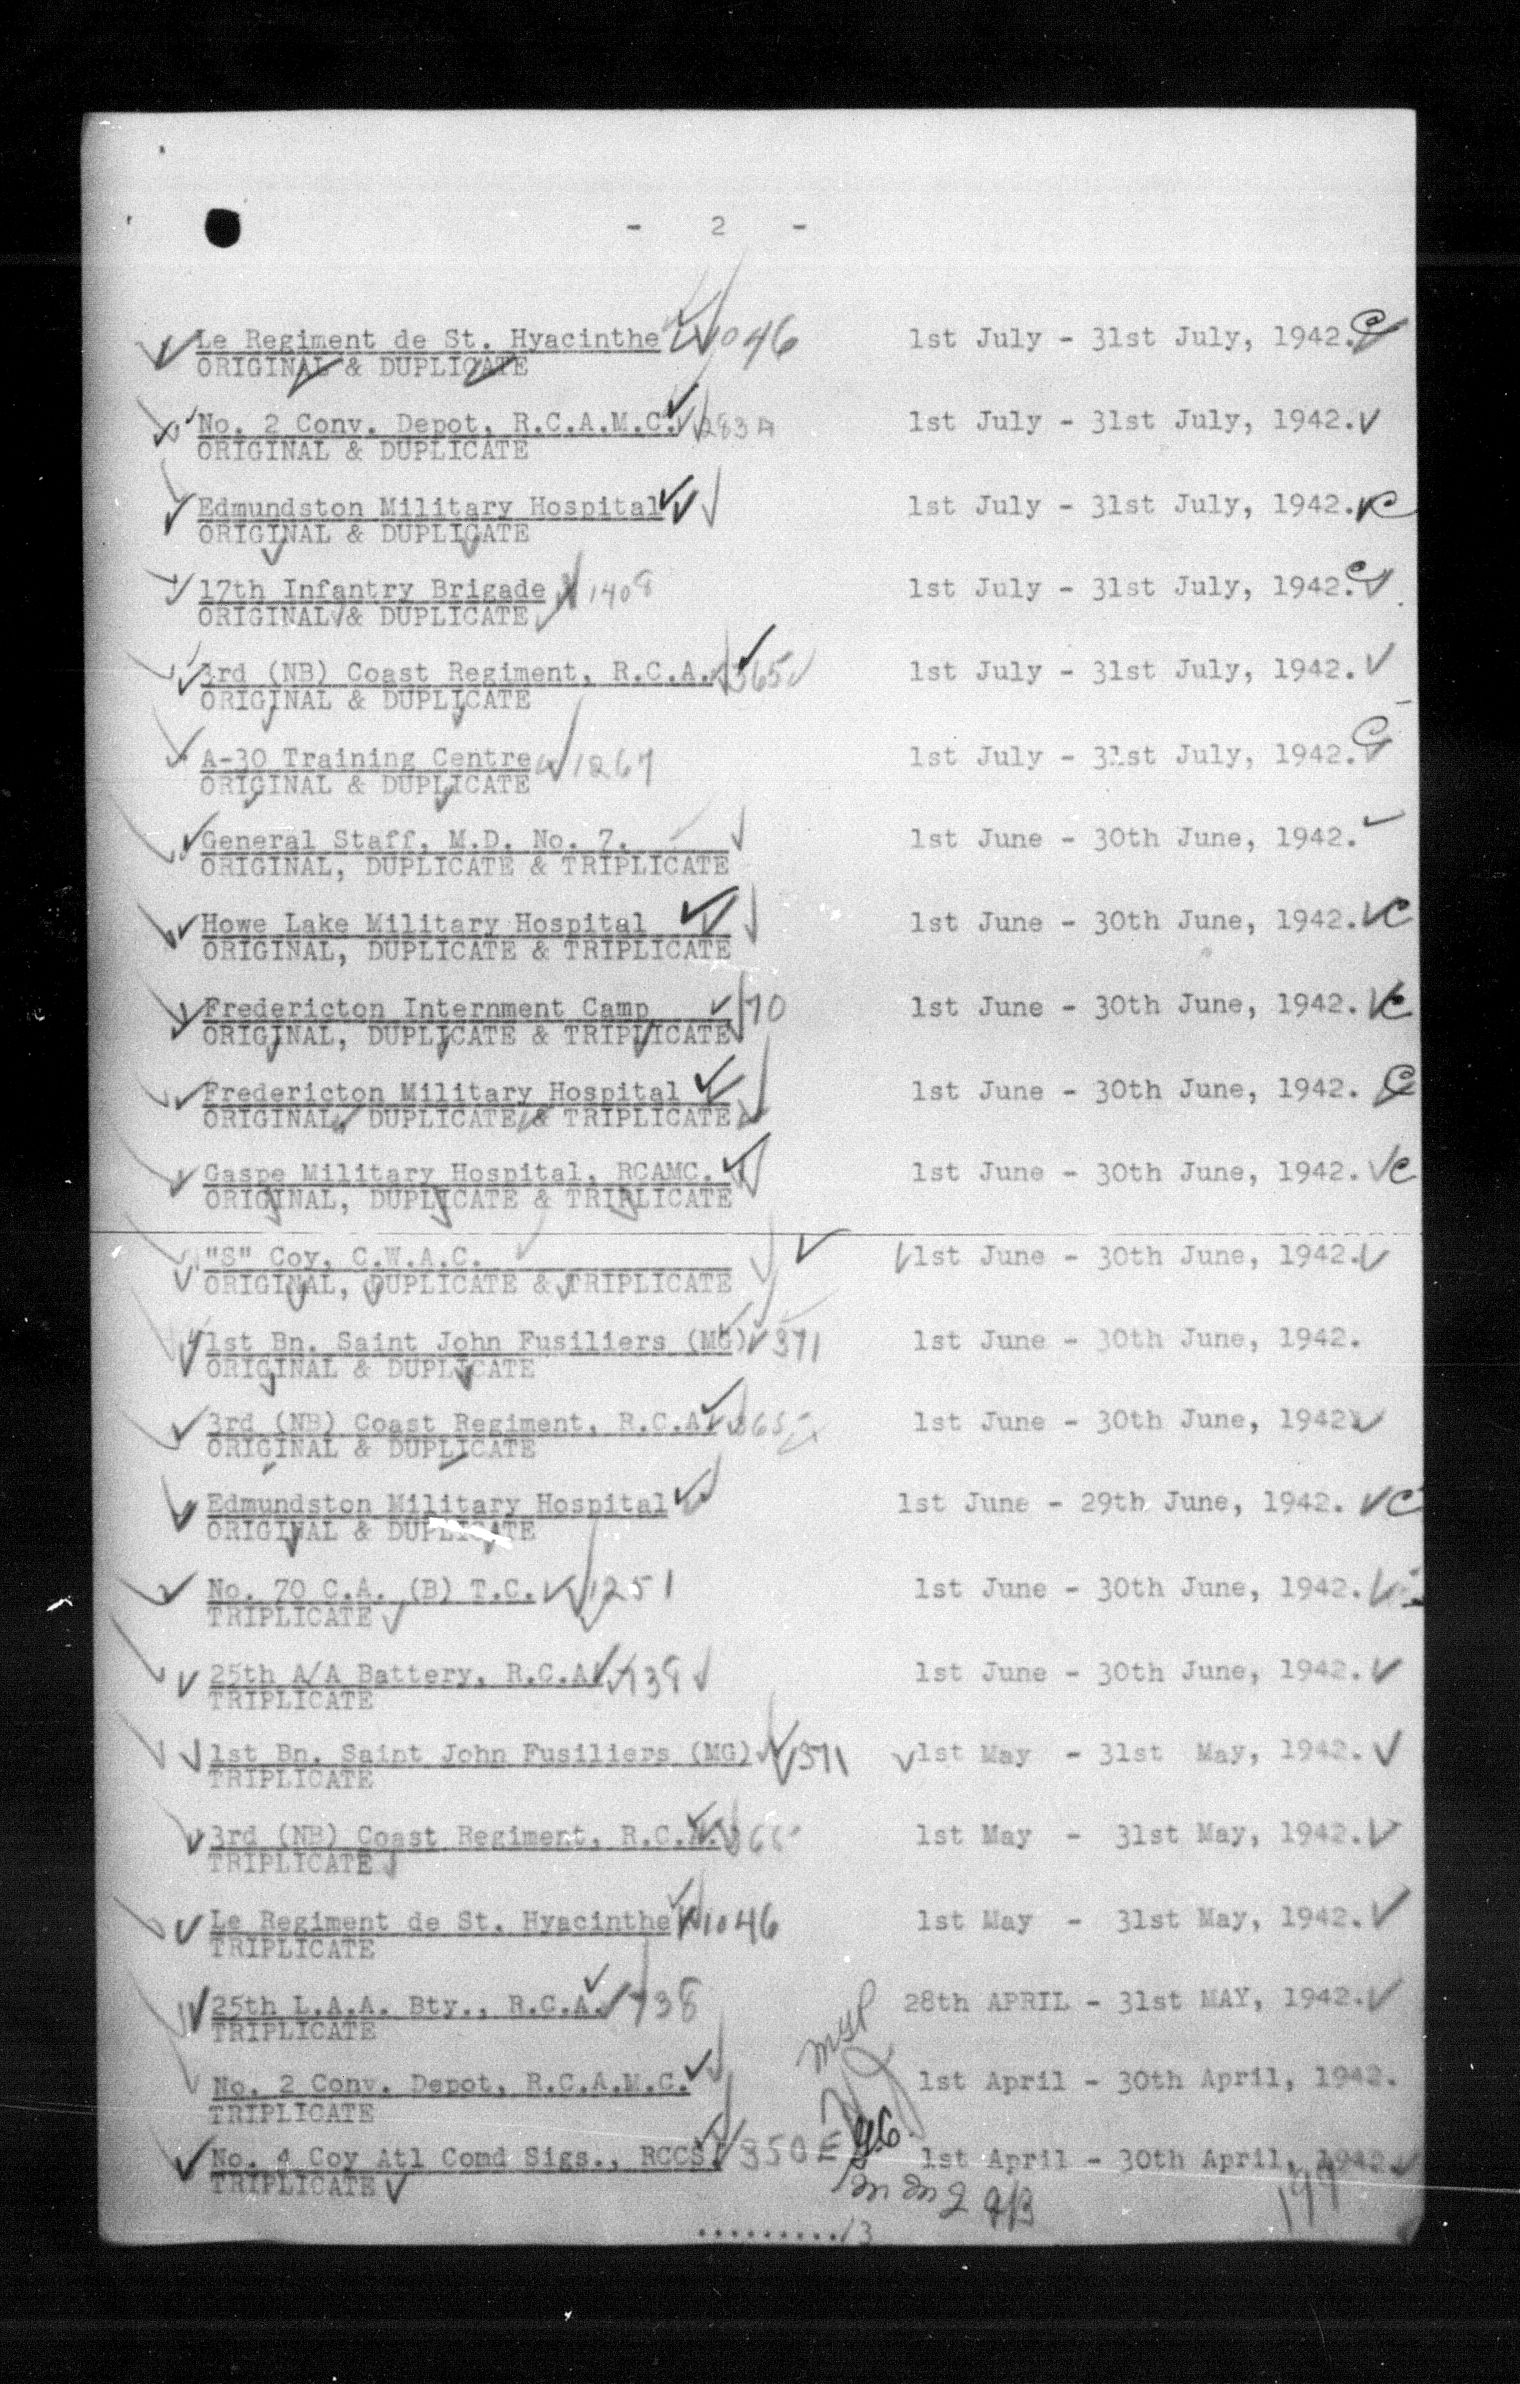 - 2 -
Le Regiment de St. Hyacinthe 1046 1st July - 31st July, 1942. C
ORIGINAL & DUPLICATE
No. 2 Conv. Depot, R.C.A.M.C. 1st July - 31st July, 1942.
ORIGINAL & DUPLICATE
Edmundston Military Hospital 1st July - 31st July, 1942. C
ORIGINAL & DUPLICATE
17th Infantry Brigade 1408 1st July - 31st July, 1942. C
ORIGINAL & DUPLICATE
3rd (NB) Coast Regiment, R.C.A. 365 1st July - 31st July, 1942.
ORIGINAL & DUPLICATE
A-30 Training Centre 1267 1st July - 31st July, 1942. C
ORIGINAL & DUPLICATE
General Staff, M.D. No. 7. 1st June - 30th June, 1942.
ORIGINAL, DUPLICATE & TRIPLICATE
Howe Lake Military Hospital 1st June - 30th June, 1942. C
ORIGINAL, DUPLICATE & TRIPLICATE
Fredericton Internment Camp 70 1st June - 30th June, 1942. C
ORIGINAL, DUPLICATE & TRIPLICATE
Fredericton Military Hospital 1st June - 30th June, 1942. C
ORIGINAL, DUPLICATE & TRIPLICATE
Gaspe Military Hospital, RCAMC. 1st June - 30th June, 1942. C
ORIGINAL, DUPLICATE & TRIPLICATE
"S" Coy, C.W.A.C. 1st June - 30th June, 1942.
ORIGINAL, DUPLICATE & TRIPLICATE
1st Bn. Saint John Fusiliers (MG) 371 1st June - 30th June, 1942.
ORIGINAL & DUPLICATE
3rd (NB) Coast Regiment, R.C.A. 365 1st June - 30th June, 1942.
ORIGINAL & DUPLICATE
Edmundston Military Hospital 1st June - 29th June, 1942. C
ORIGINAL & DUPLICATE
No. 70 C.A. (B) T.C. 1251 1st June - 30th June, 1942.
TRIPLICATE
25th A/A Battery, R.C.A. 738 1st June - 30th June, 1942.
TRIPLICATE
1st Bn. Saint John Fusiliers (MG) 371 1st May - 31st May, 1942.
TRIPLICATE
3rd (NB) Coast Regiment, R.C.A. 365 1st May - 31st May, 1942.
TRIPLICATE
Le Regiment de St. Hyacinthe 1046 1st May - 31st May, 1942.
TRIPLICATE
25th L.A.A. Bty., R.C.A. 738 28th APRIL - 31st MAY, 1942.
TRIPLICATE
No. 2 Conv. Depot, R.C.A.M.C. 1st April - 30th April, 1942.
TRIPLICATE
No. 4 Coy Atl Comd Sigs., RCCS. 350E 1st April - 30th April, 1942.
TRIPLICATE
199
........../3